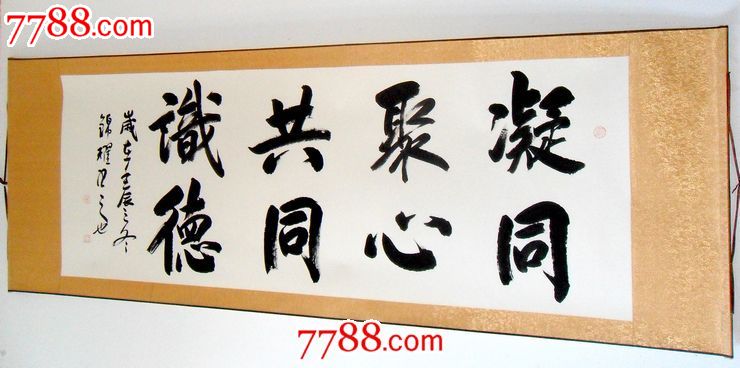 7788.com
凝聚共識
同心同德
歲在壬辰之冬
錦耀
7788.com